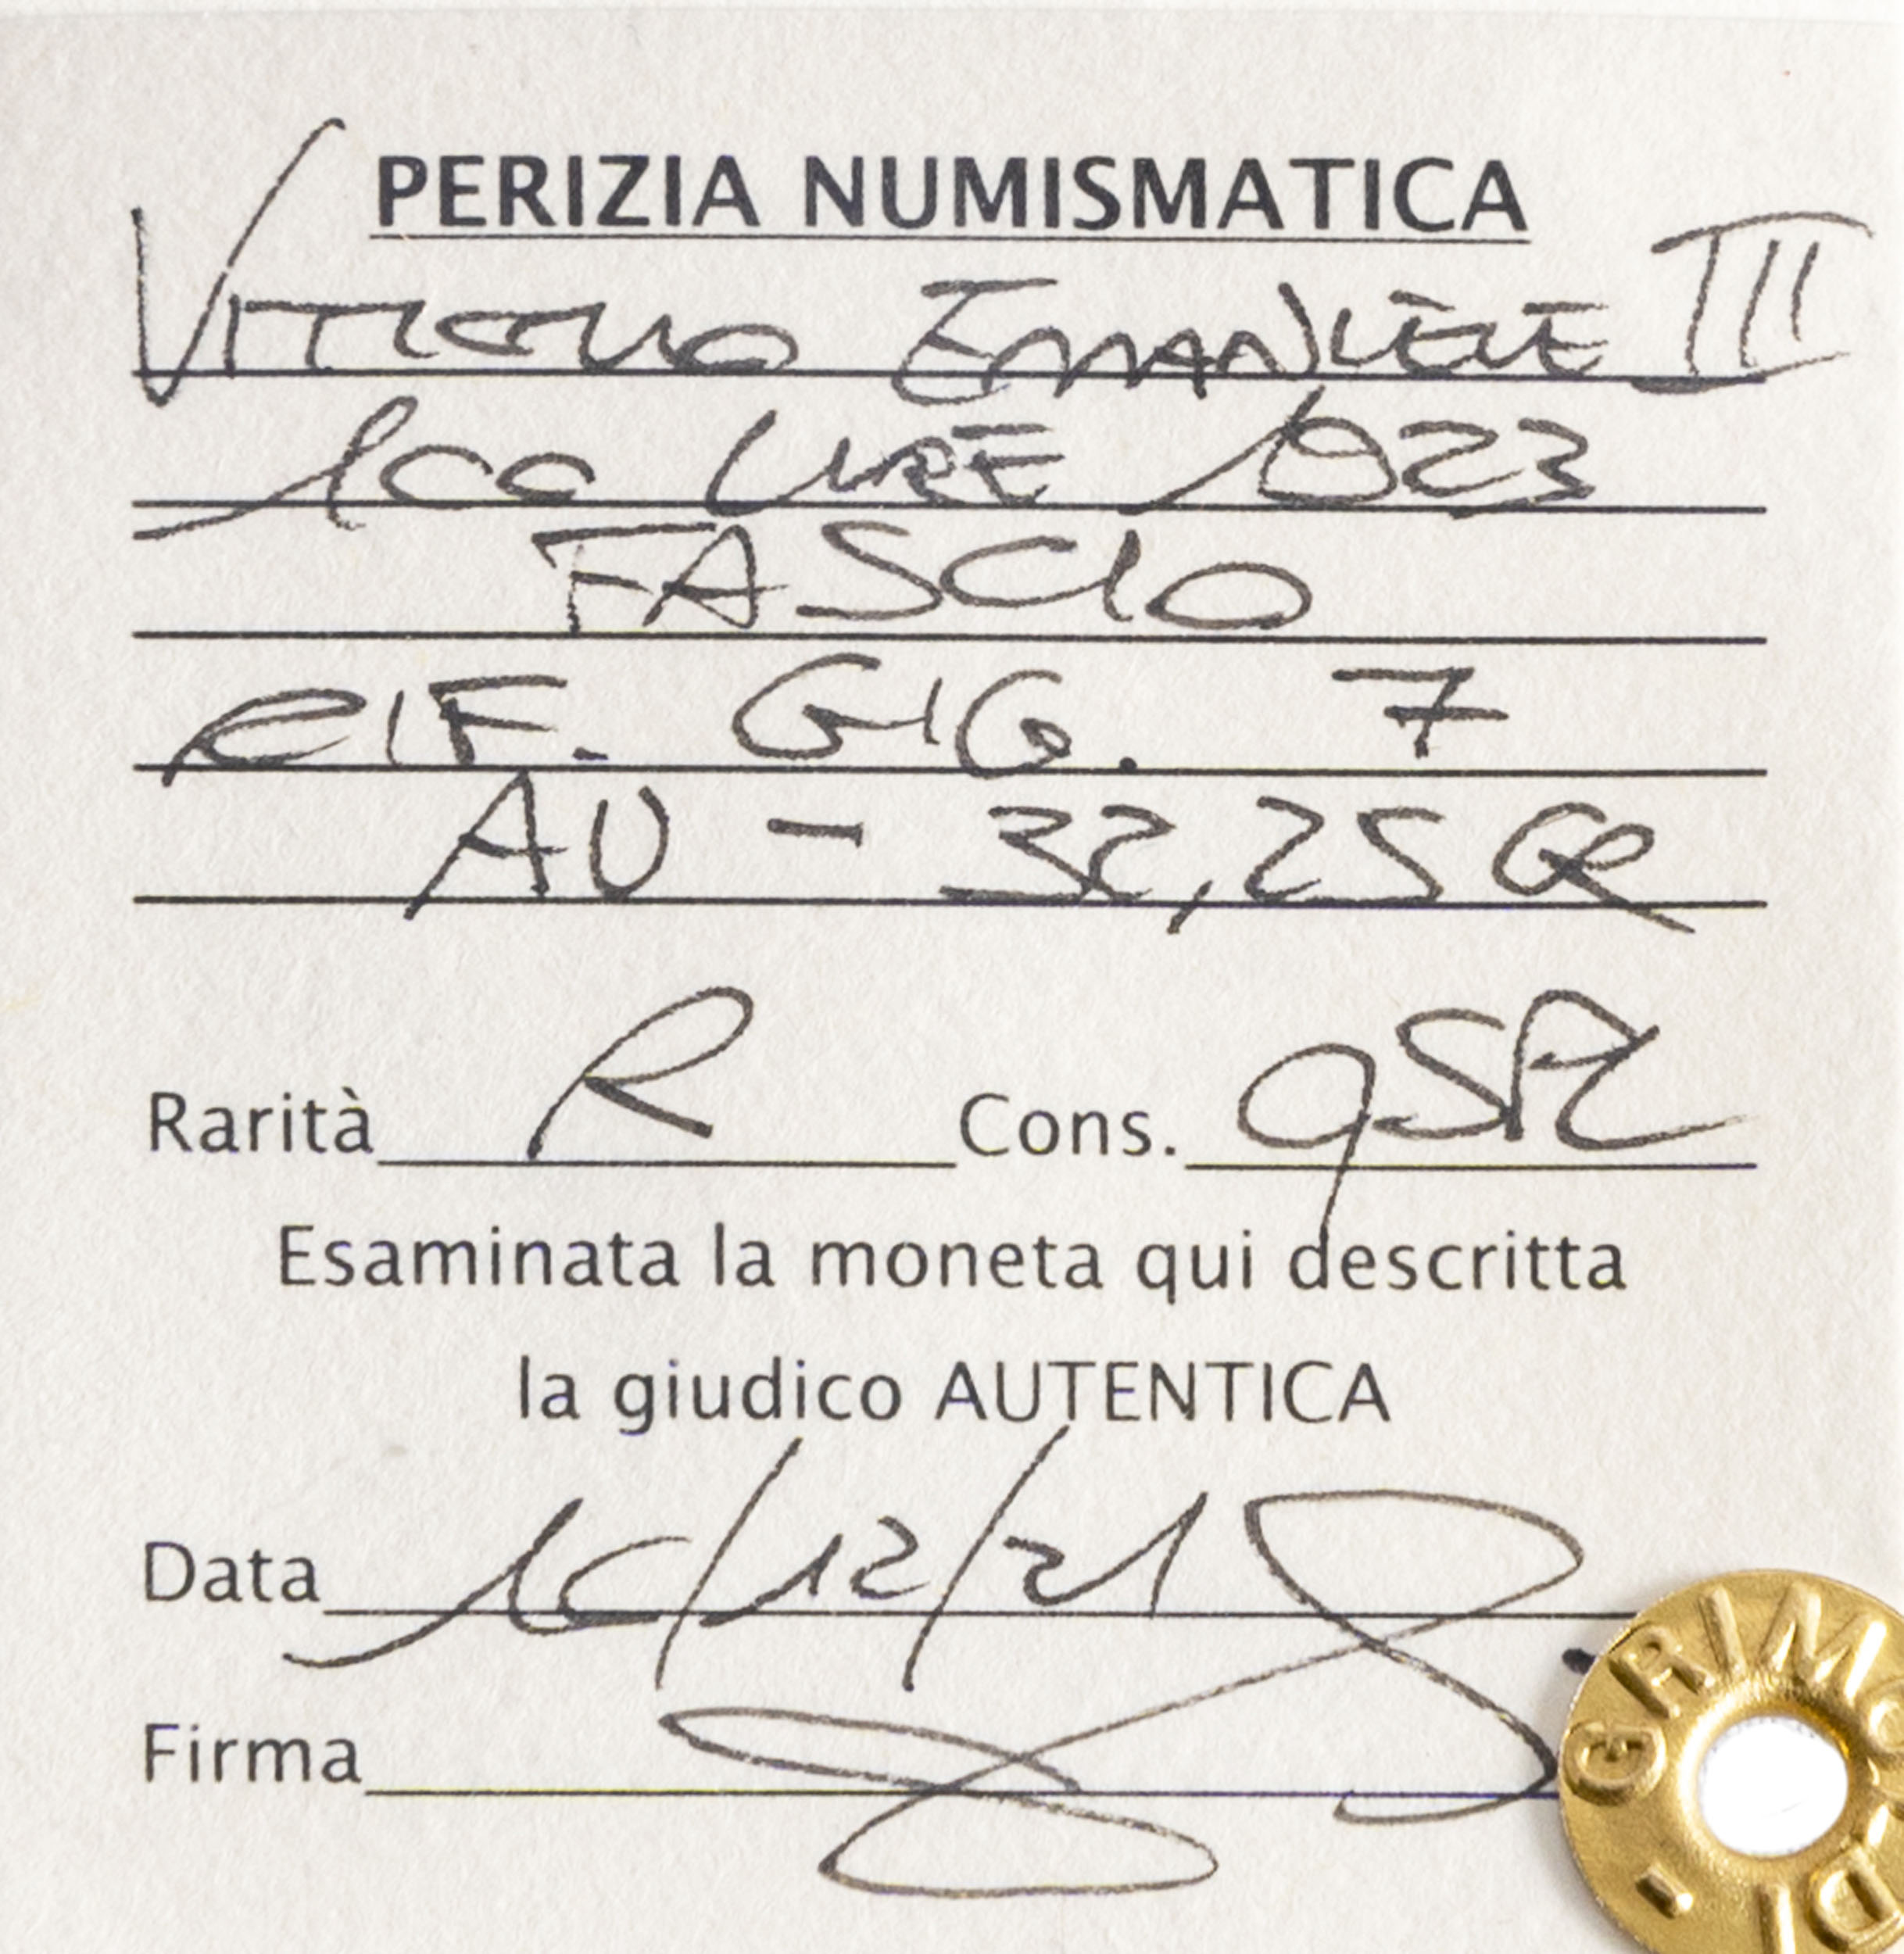 PERIZIA NUMISMATICA
VITTORIO EMANUELE III
100 LIRE 1923
FASCIO
RIF. GIG. 7
AU - 32,25 GR
Rarità R Cons. qSPL
Esaminata la moneta qui descritta
la giudico AUTENTICA
Data /12/21
Firma
- GRIMO
DI